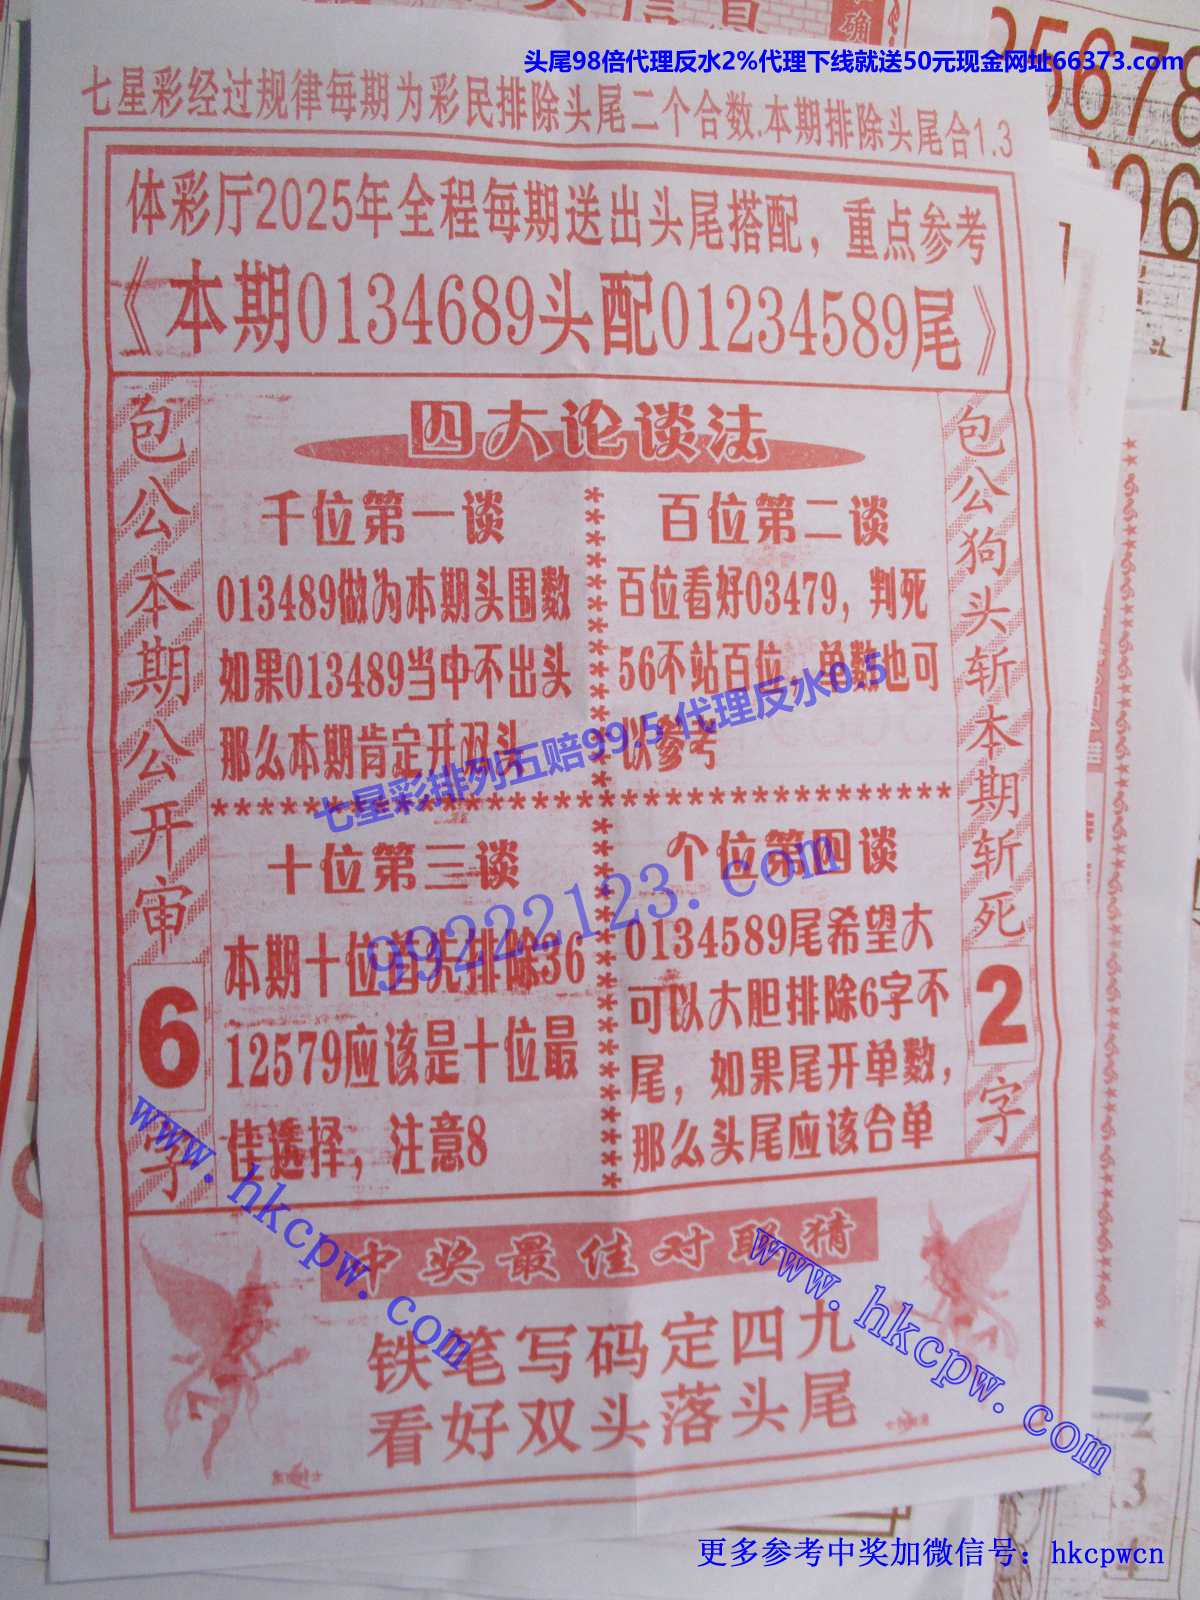 头尾98倍代理反水2%代理下线就送50元现金网址66373.com
七星彩经过规律每期为彩民排除头尾二个合数.本期排除头尾合1.3
体彩厅2025年全程每期送出头尾搭配，重点参考
《本期0134689头配01234589尾》
包公本期公开审
6
字
四大论谈法
千位第一谈
013489做为本期头围数
如果013489当中不出头
那么本期肯定开双头
百位第二谈
百位看好03479，判死
56不站百位，单数也可
以参考
七星彩排列五赔99.5 代理反水0.5
99222123.com
十位第三谈
本期十位首先排除36
12579应该是十位最
佳选择，注意8
个位第四谈
0134589尾希望大
可以大胆排除6字不
尾，如果尾开单数，
那么头尾应该合单
包公狗头斩本期斩死
2
字
中奖最佳对联猜
铁笔写码定四九
看好双头落头尾
www.hkcpw.com
www.hkcpw.com
更多参考中奖加微信号：hkcpwcn